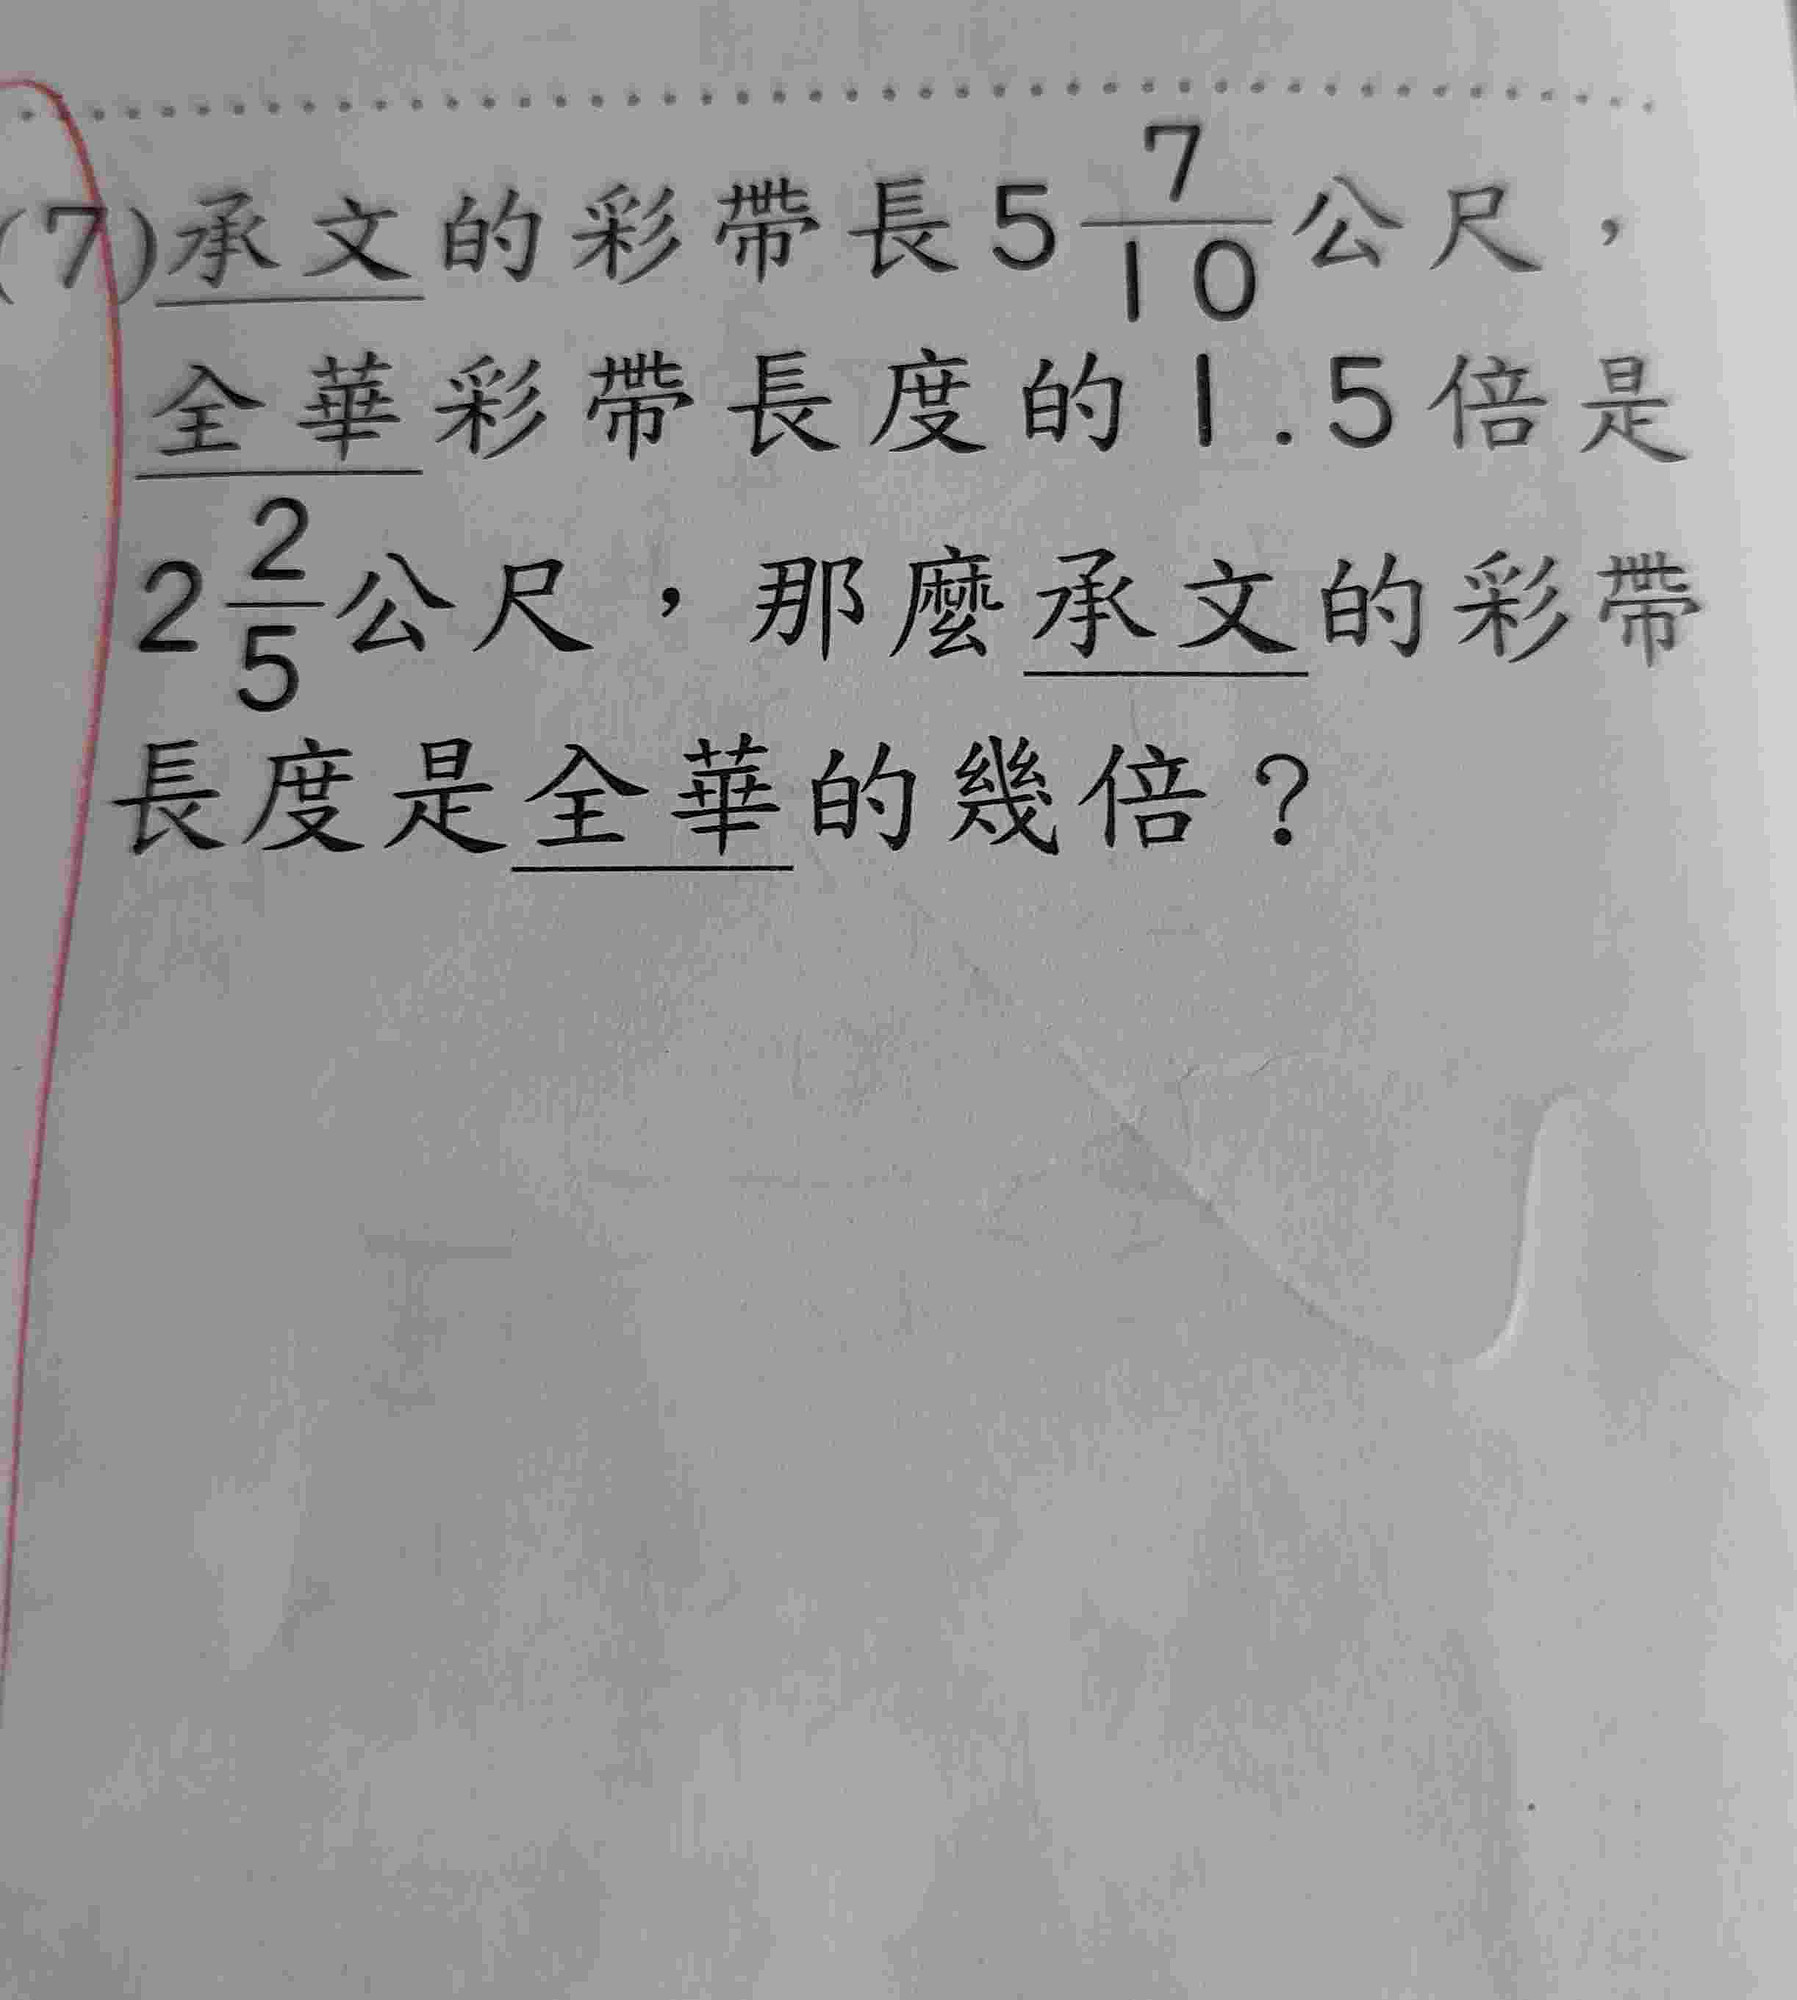 (7)承文的彩帶長5 7/10公尺，
全華彩帶長度的1.5倍是
2 2/5公尺，那麼承文的彩帶
長度是全華的幾倍？